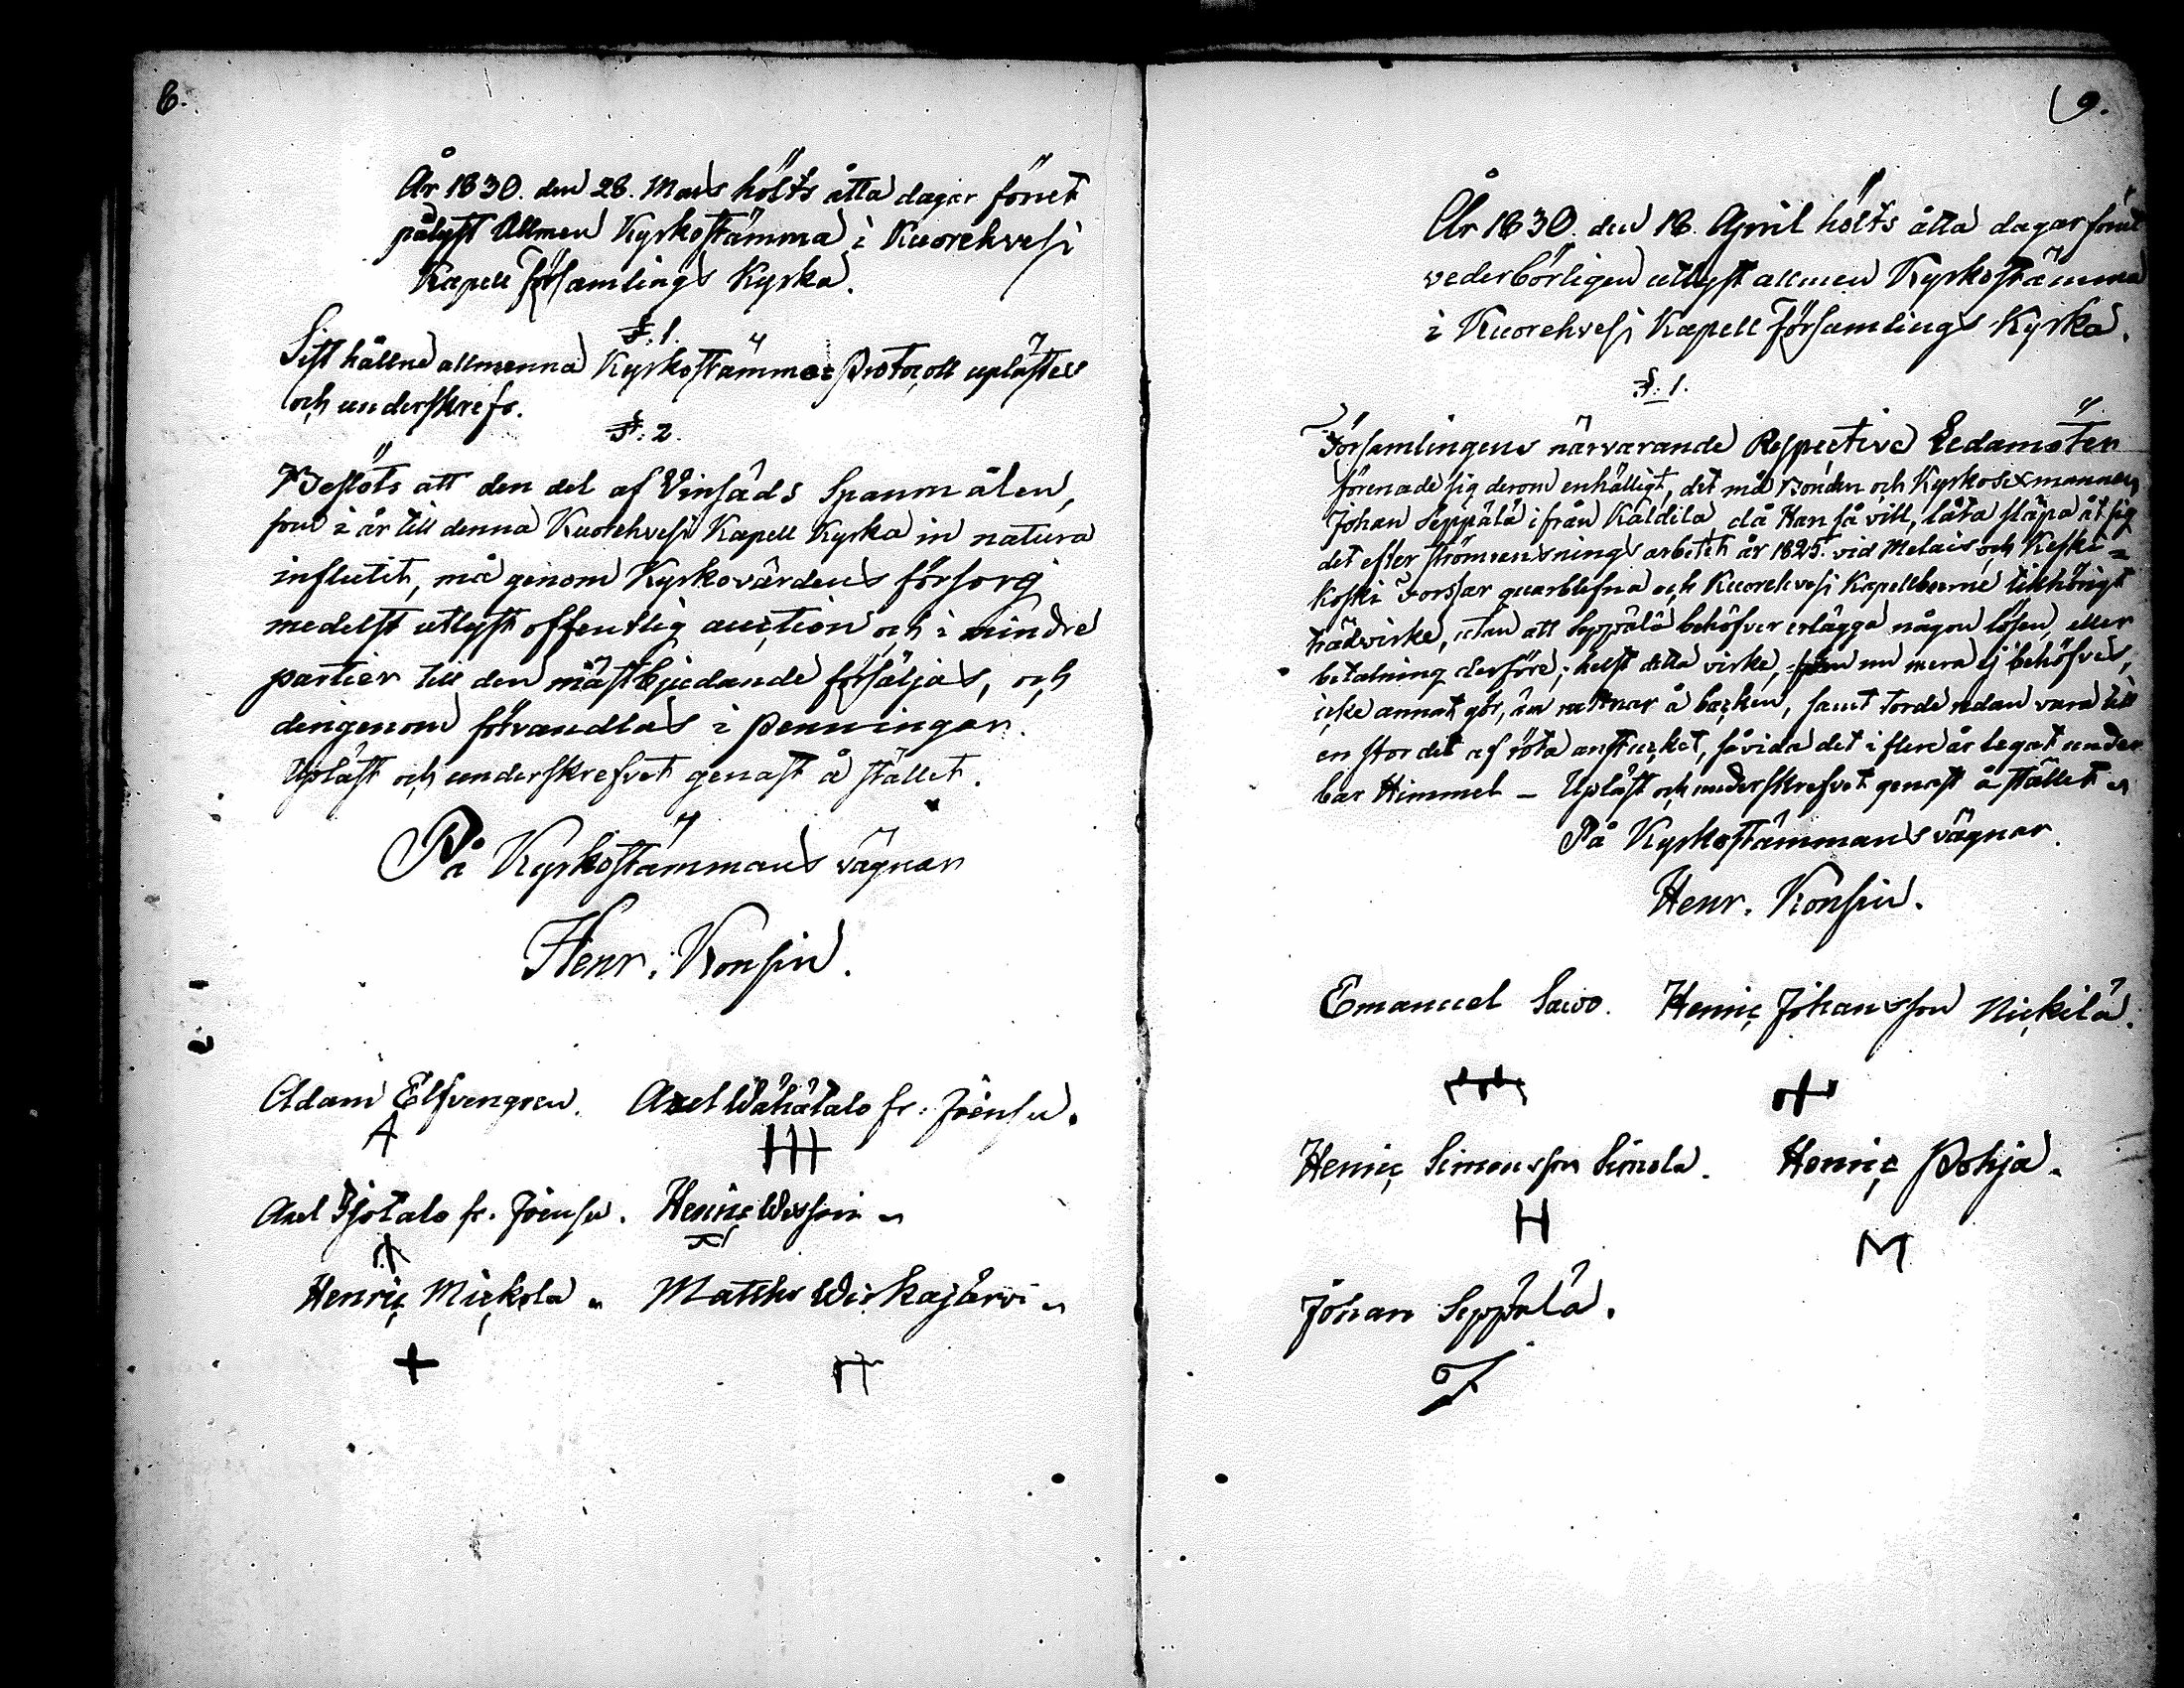 8.
År 1830. den 28. Mars hölts åtta dagar förut
pålyst Allmen Kyrkostämma i Kuorehvesi
Kapell Församlings Kyrka.
§. 1.
Sist hållne allmenna Kyrkostämmas Protocoll uplästes
och underskrefs.
§. 2.
Beslöts att den del af Vinsåds Spanmålen,
som i år till denna Kuorehvesi Kapell Kyrka in natura
influtit, må genom Kyrkovärdens försorg
medelst utlyst offentlig auction och i mindre
partier till den mästbjudande försäljas, och
derigenom förvandlas i penningar.
Upläst och underskrefvet genast å stället.
På Kyrkostämmans vägnar
Henr. Konsin.
Adam Elfvengren. Axel Wähätalo fr. Joensu.
A
Axel Isotalo fr. Joensu. Henric
Henric Mickola Matths Wirkajärvi
9.
År 1830. den 18. April hölts åtta dagar förut
vederbörligen utlyst allmen Kyrkostämma
i Kuorehvesi Kapell Församlings Kyrka.
§. 1.
Församlingens närvarande Respective Ledamöter
förenade sig derom enhälligt, det må Bonden och Kyrkosexmannen
Johan Seppälä ifrån Kaldila, då Han så vill, låta släpa åt sig
det efter strömrensnings arbetet år 1825. vid Melais och Keski=
koski forssar quarblifna och Kuorehvesi Kapellboerne tillhörigt
trädvirke, utan att Seppälä behöfver erlägga någon lösen, eller
betalning derföre; helst detta virke, som nu mera ej behöfves,
icke annat gör, än ruttnar å backen, samt torde redan vara till
en stor del af röta anstucket, såvida det i flere år legat under
bar Himmel – Upläst och underskrefvet genast å stället
På Kyrkostämmans vägnar.
Henr. Konsin.
Emanuel Sawo. Henric Johansson Nickilä.
Henric Simonsson Simola. Henric Pohja.
H M
Johan Seppälä.